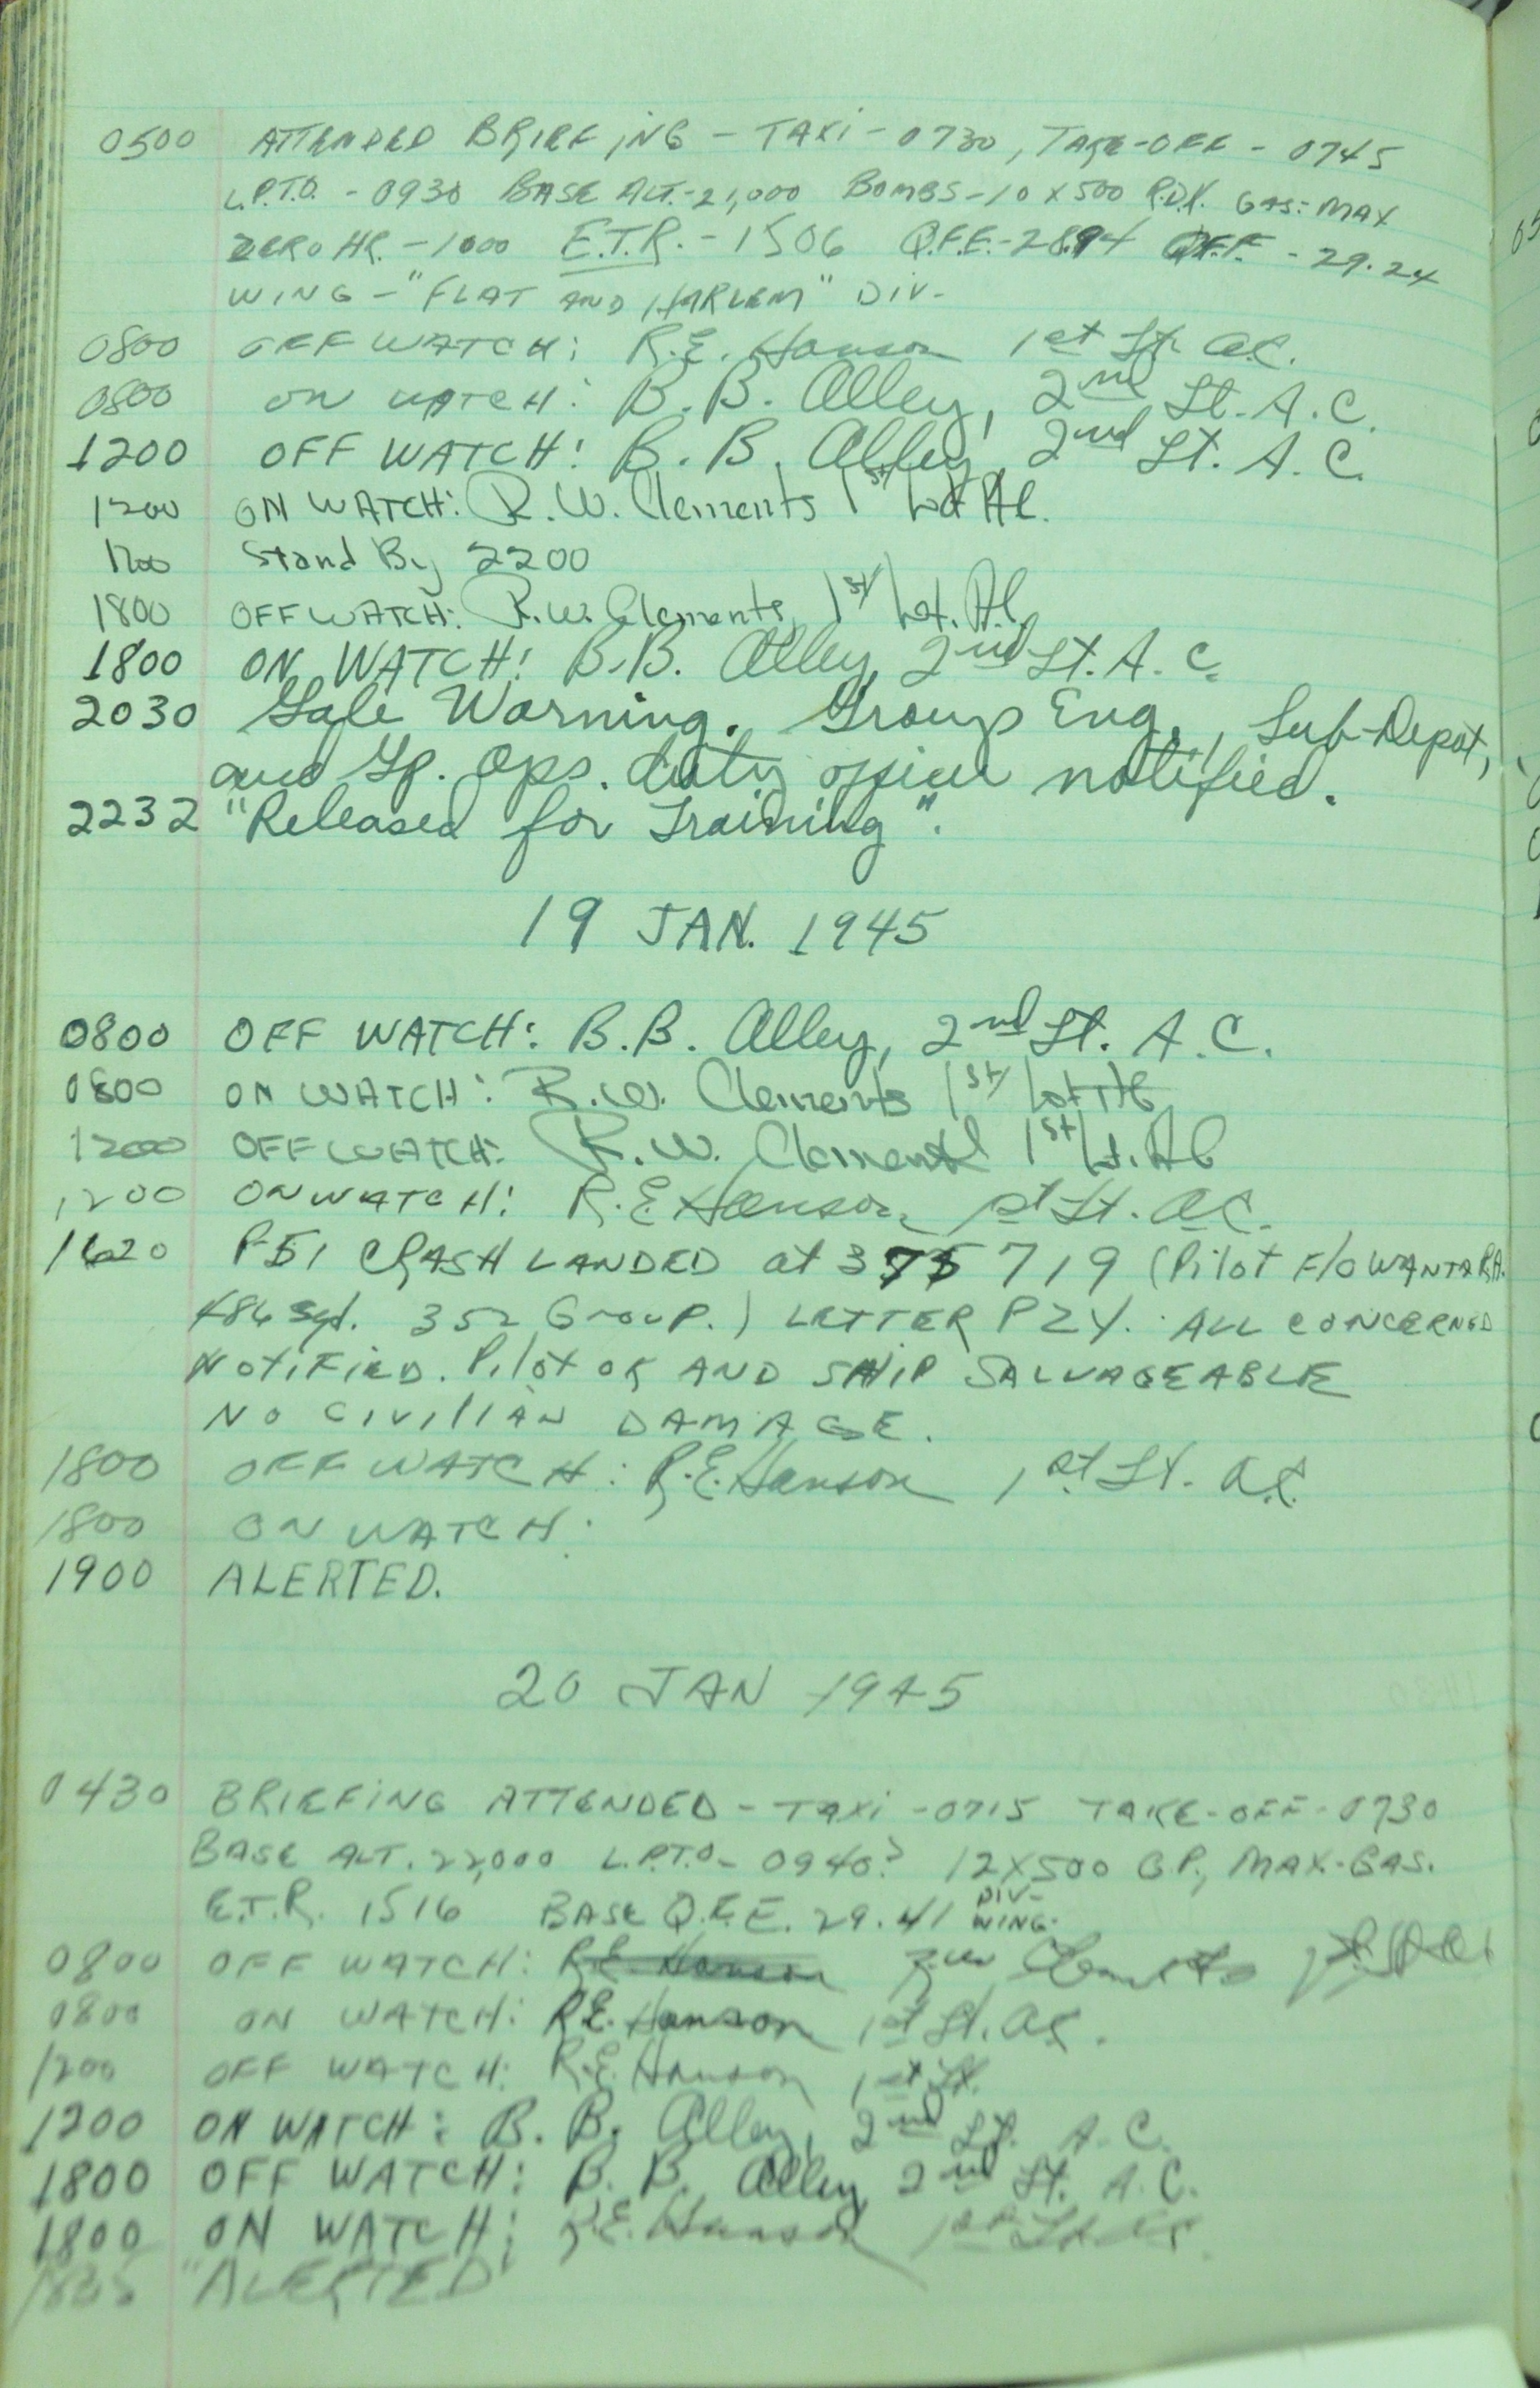 0500 ATTENDED BRIEFING - TAXI - 0730, TAKE-OFF - 0745
L.P.T.O. - 0930 BASE ALT.- 21,000 BOMBS - 10 X 500 R.D.X. GAS: MAX
ZERO HR. - 1000 E.T.R. - 1506 Q.F.E. - 28.94 Q.F.F. - 29.24
WING - "FLAT AND HARLEM" DIV-
0800 OFF WATCH: R.E. Hanson 1st Lt. A.C.
0800 ON WATCH: B.B. Alley, 2nd Lt. A.C.
1200 OFF WATCH: B.B. Alley, 2nd Lt. A.C.
1200 ON WATCH: R.W. Clements 1st Lt AC.
1700 Stand By 2200
1800 OFF WATCH: R.W. Clements, 1st Lt. AC.
1800 ON WATCH: B.B. Alley, 2nd Lt. A.C.
2030 Gale Warning. Group Eng., Sub-Depot,
and Gp. Ops. duty officer notified.
2232 "Released for Training".
19 JAN. 1945
0800 OFF WATCH: B.B. Alley, 2nd Lt. A.C.
0800 ON WATCH: R.W. Clements 1st Lt AC
1200 OFF WATCH: R.W. Clements 1st Lt. AC
1200 ON WATCH: R.E. Hanson, 1st Lt. A.C.
1620 P-51 CRASH LANDED at 719 (Pilot F/O
486 Sqd. 352 Group.) LETTER PZY. ALL CONCERNED
NOTIFIED. Pilot OK AND SHIP SALVAGEABLE
NO CIVILIAN DAMAGE.
1800 OFF WATCH: R.E. Hanson 1st Lt. A.C.
1800 ON WATCH:
1900 ALERTED.
20 JAN 1945
0430 BRIEFING ATTENDED - TAXI - 0715 TAKE-OFF - 0730
BASE ALT. 22,000 L.P.T.O - 0940? 12X500 G.P., MAX. GAS.
E.T.R. 1516 BASE Q.F.E. 29.41 DIV-
WING-
0800 OFF WATCH: R.E. Hanson
0800 ON WATCH: R.E. Hanson 1st Lt. A.C.
1200 OFF WATCH: R.E. Hanson 1st Lt.
1200 ON WATCH: B. B. Alley, 2nd Lt. A.C.
1800 OFF WATCH: B. B. Alley 2nd Lt. A.C.
1800 ON WATCH: R.E. Hanson 1st Lt AC
"ALERTED"